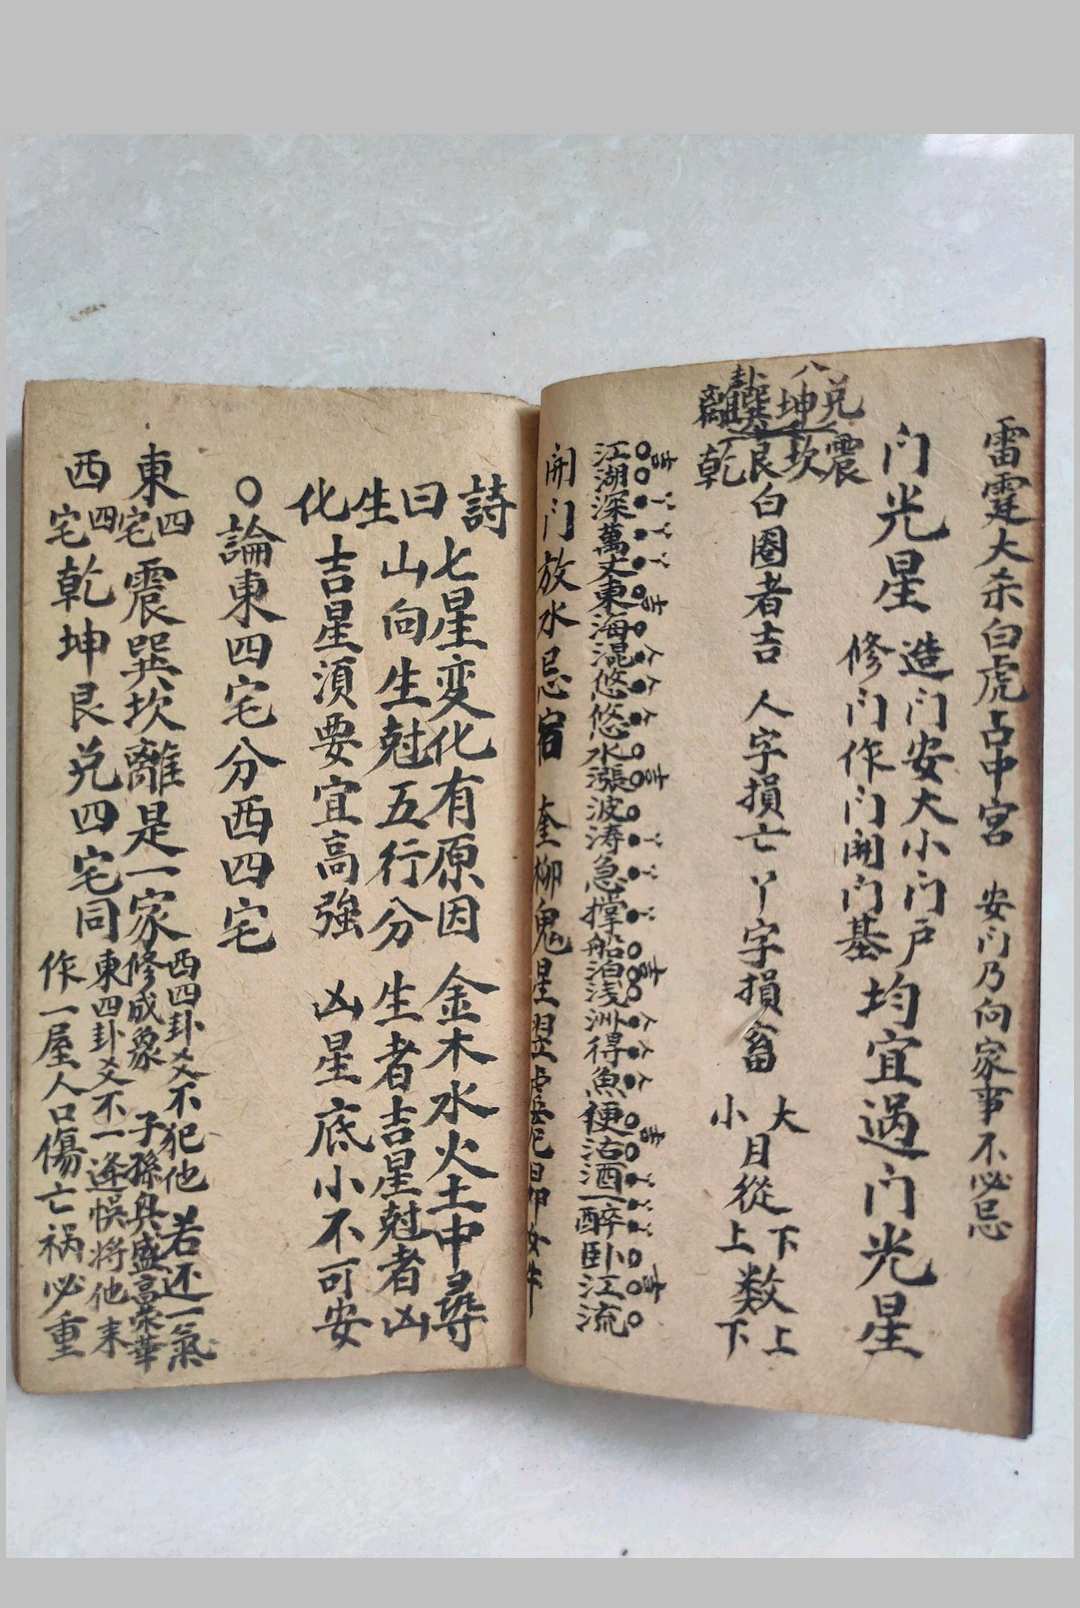 雷霆大杀白虎占中宫 安门乃向家事不必忌
门光星 造门安大小门户 修门作门開門基 均宜遇门光星
八卦
兑坤巽離
震坎艮乾
白圈者吉 人字損亡 丫字損畜 大月從下数上 小月從上数下
江湖深萬丈東海混悠悠水漲波涛急撑船泊浅洲得魚便沽酒一醉卧江流
開门放水忌宿 奎柳鬼星翌虚
詩曰 七星変化有原因 金木水火土中尋
生 山向生尅五行分 生者吉星尅者凶
化 吉星須要宜高強 凶星底小不可安
〇論東四宅分西四宅
東四宅 震巽坎離是一家 西四卦爻不犯他 若还一氣修成象 子孫兴盛高荣華
西四宅 乾坤艮兑四宅同 東四卦爻不一逢 悮将他来作一屋 人口傷亡祸必重